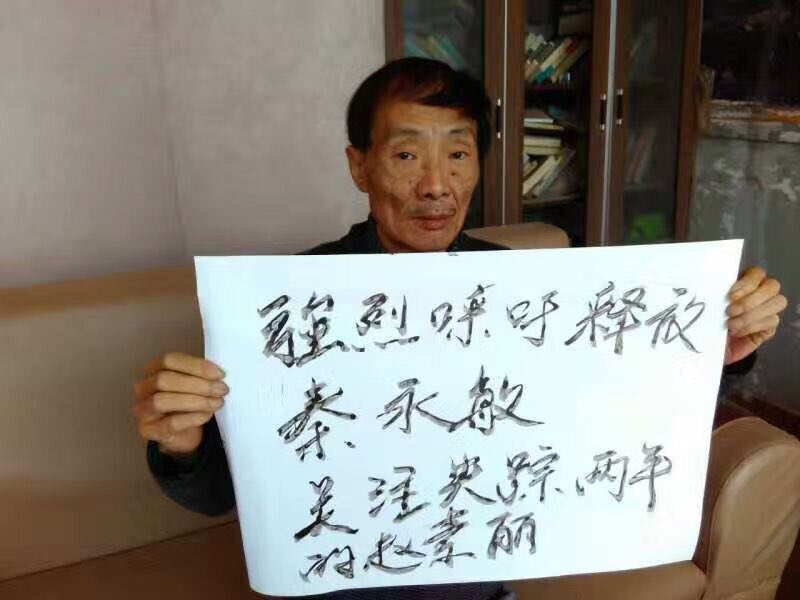 強烈呼吁释放
秦永敏
关注失踪两年
的赵素丽